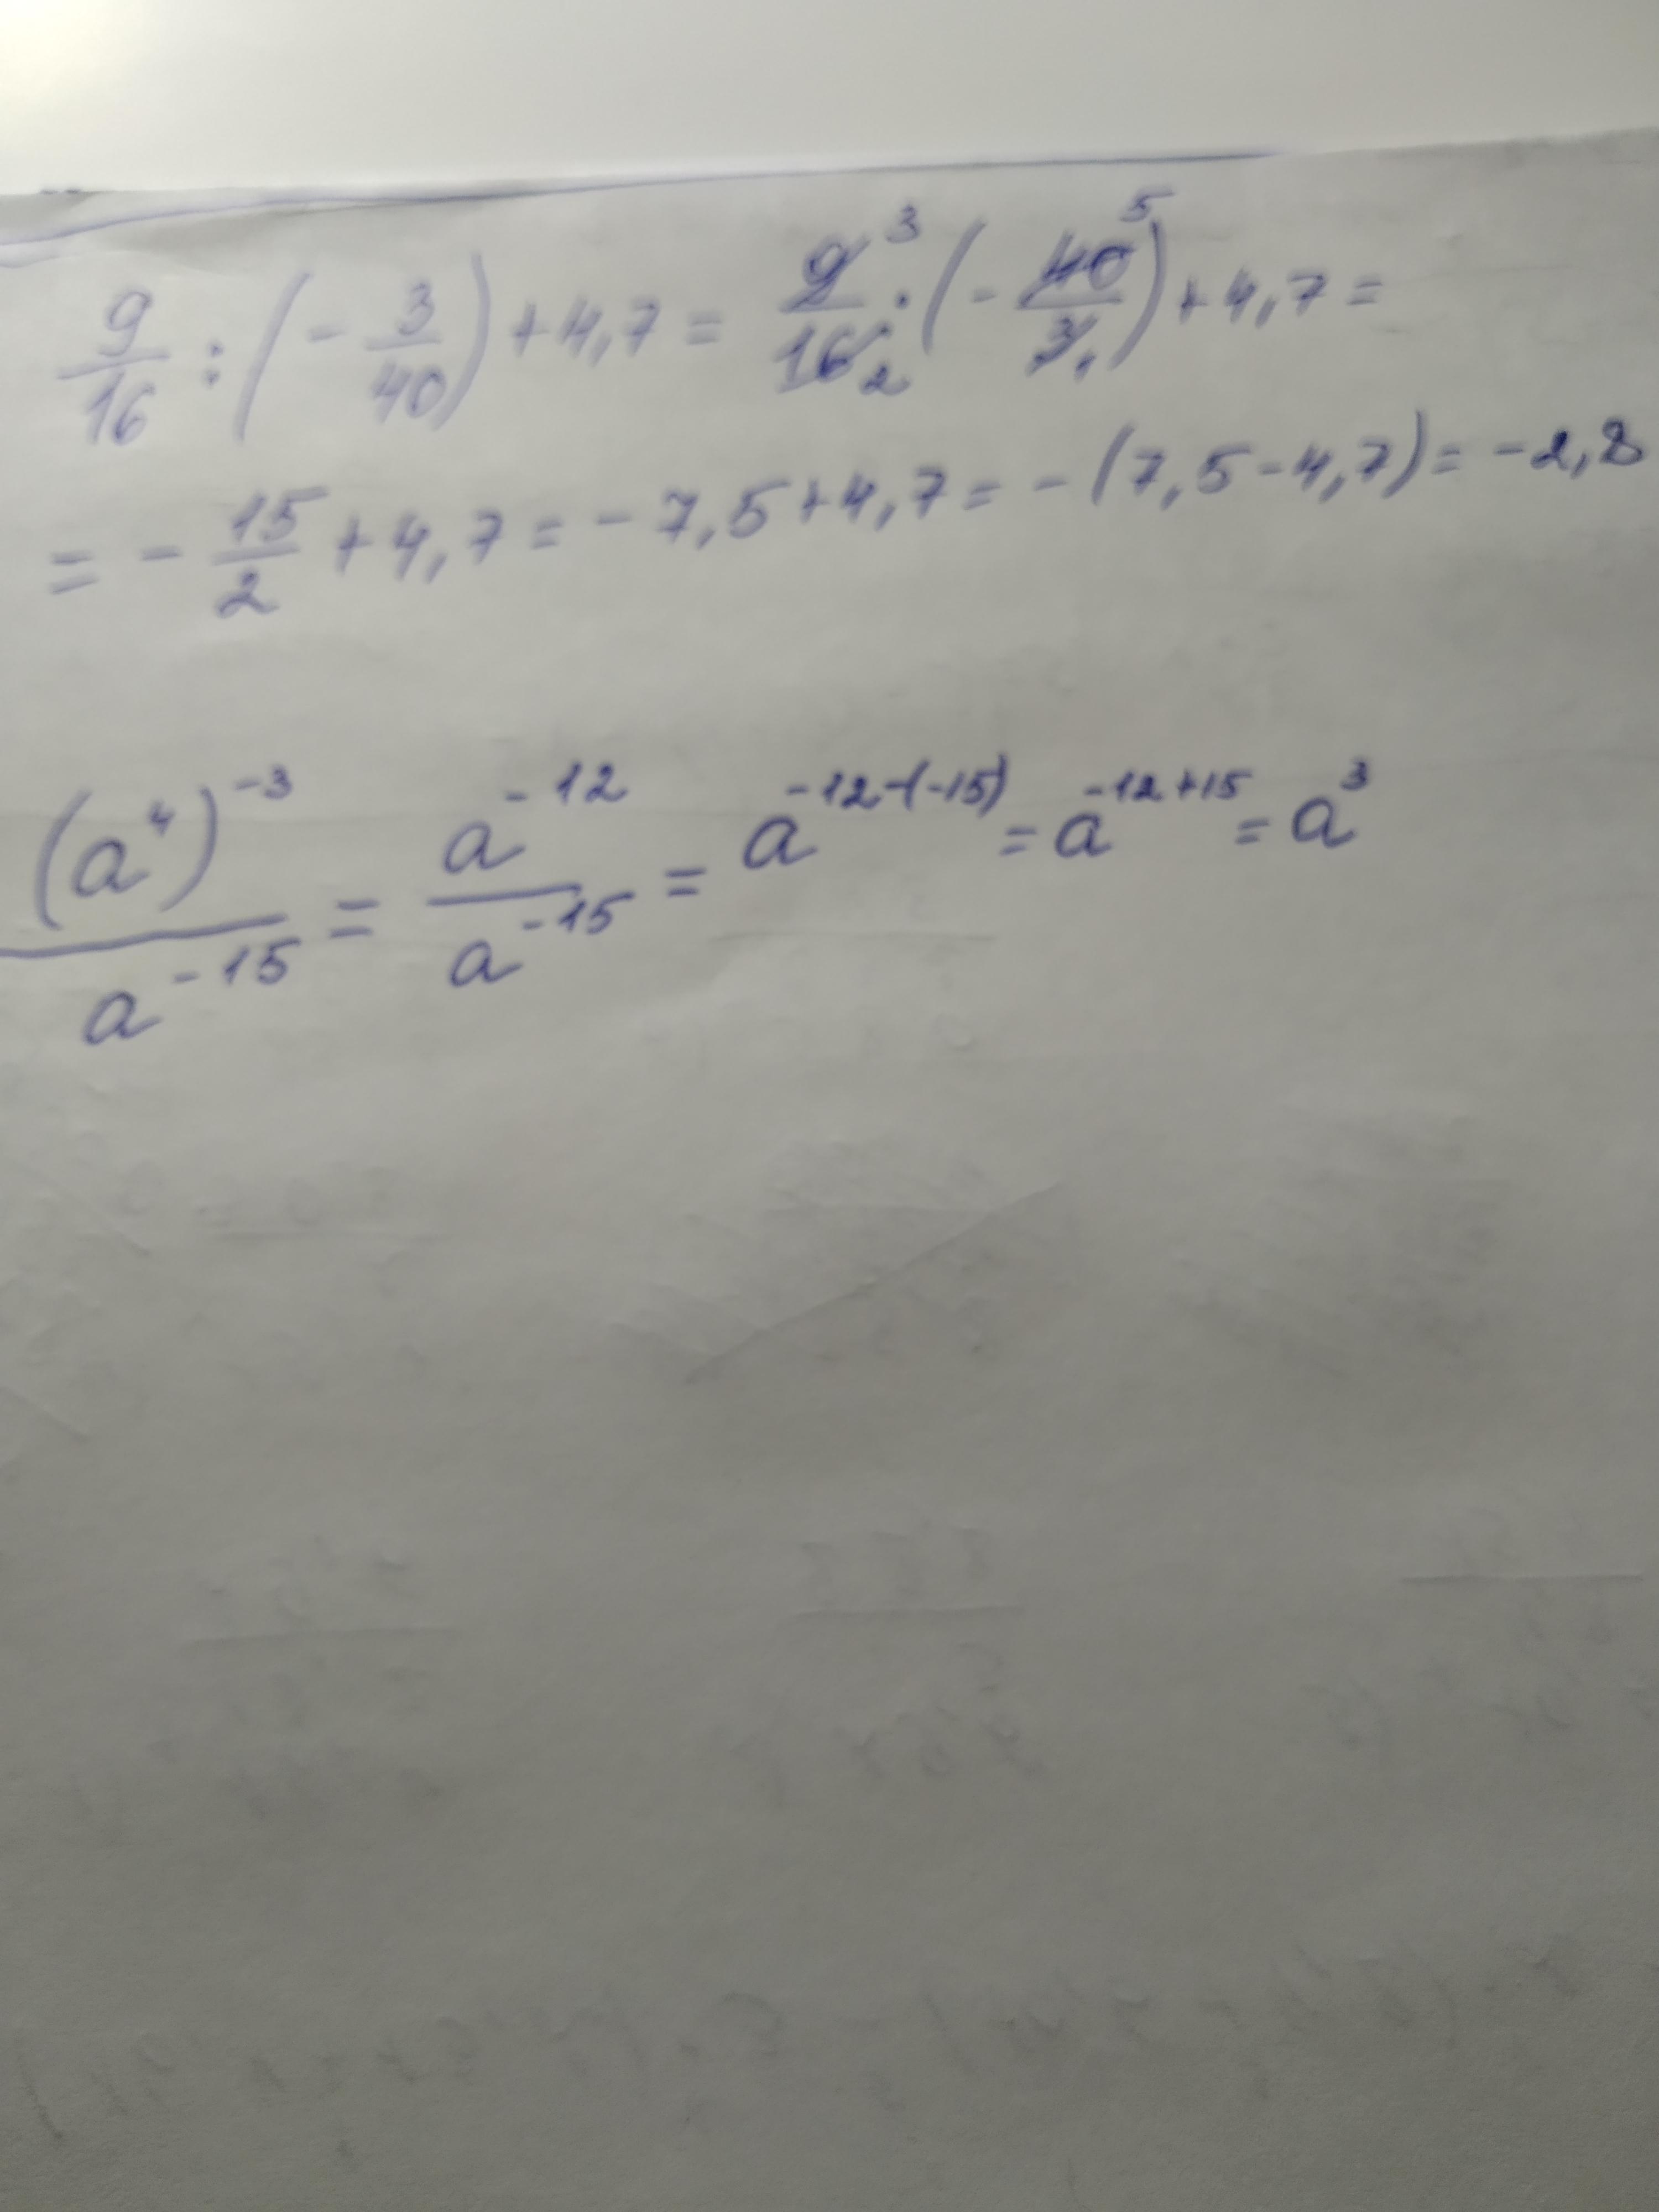 9/16 : (- 3/40) + 4,7 = 9³/16₂ · (- 40⁵/3₁) + 4,7 =
= - 15/2 + 4,7 = - 7,5 + 4,7 = - (7,5 - 4,7) = - 2,8
(a⁴)⁻³/a⁻¹⁵ = a⁻¹²/a⁻¹⁵ = a⁻¹²⁻⁽⁻¹⁵⁾ = a⁻¹²⁺¹⁵ = a³